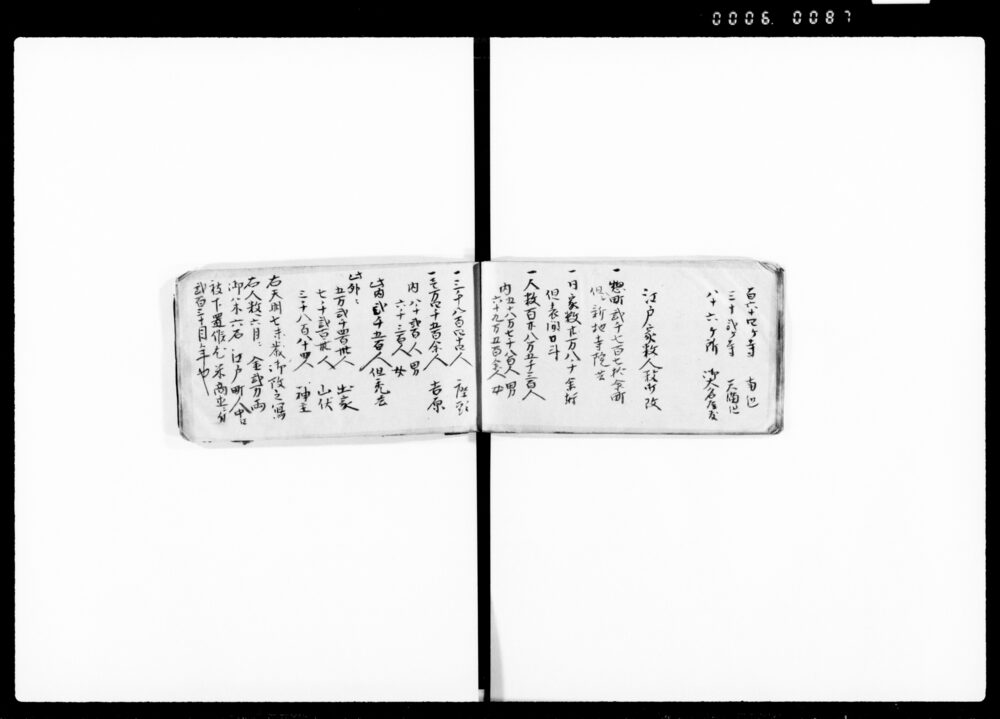 0006 0087
百六十四ヶ寺 南辺
三十弐ヶ寺 天満辺
八十六ヶ所 御大名屋敷
江戸家数人数御改
一 惣町弐千七百七拾余町
但新地寺院共
一 日家数廿万八十余軒
但表間口斗
一 人数百廿八万五千三百人
内 五十八万七千八百人 男
六十九万五百余人 女
一 三千八百四十人 座頭
一 壱万四千五百余人 吉原
内 八千弐百人 男
六千三百人 女
此内弐千五百人但禿共
此外ニ
五万弐千四百廿人 出家
七千弐百廿人 山伏
三千八百八十四人 神主
右天明七未歳御改之写
右人数六月ニ金弐万両
御米六石江戸町人中江
被下置候尤米商売一分
弐百三十目之年也